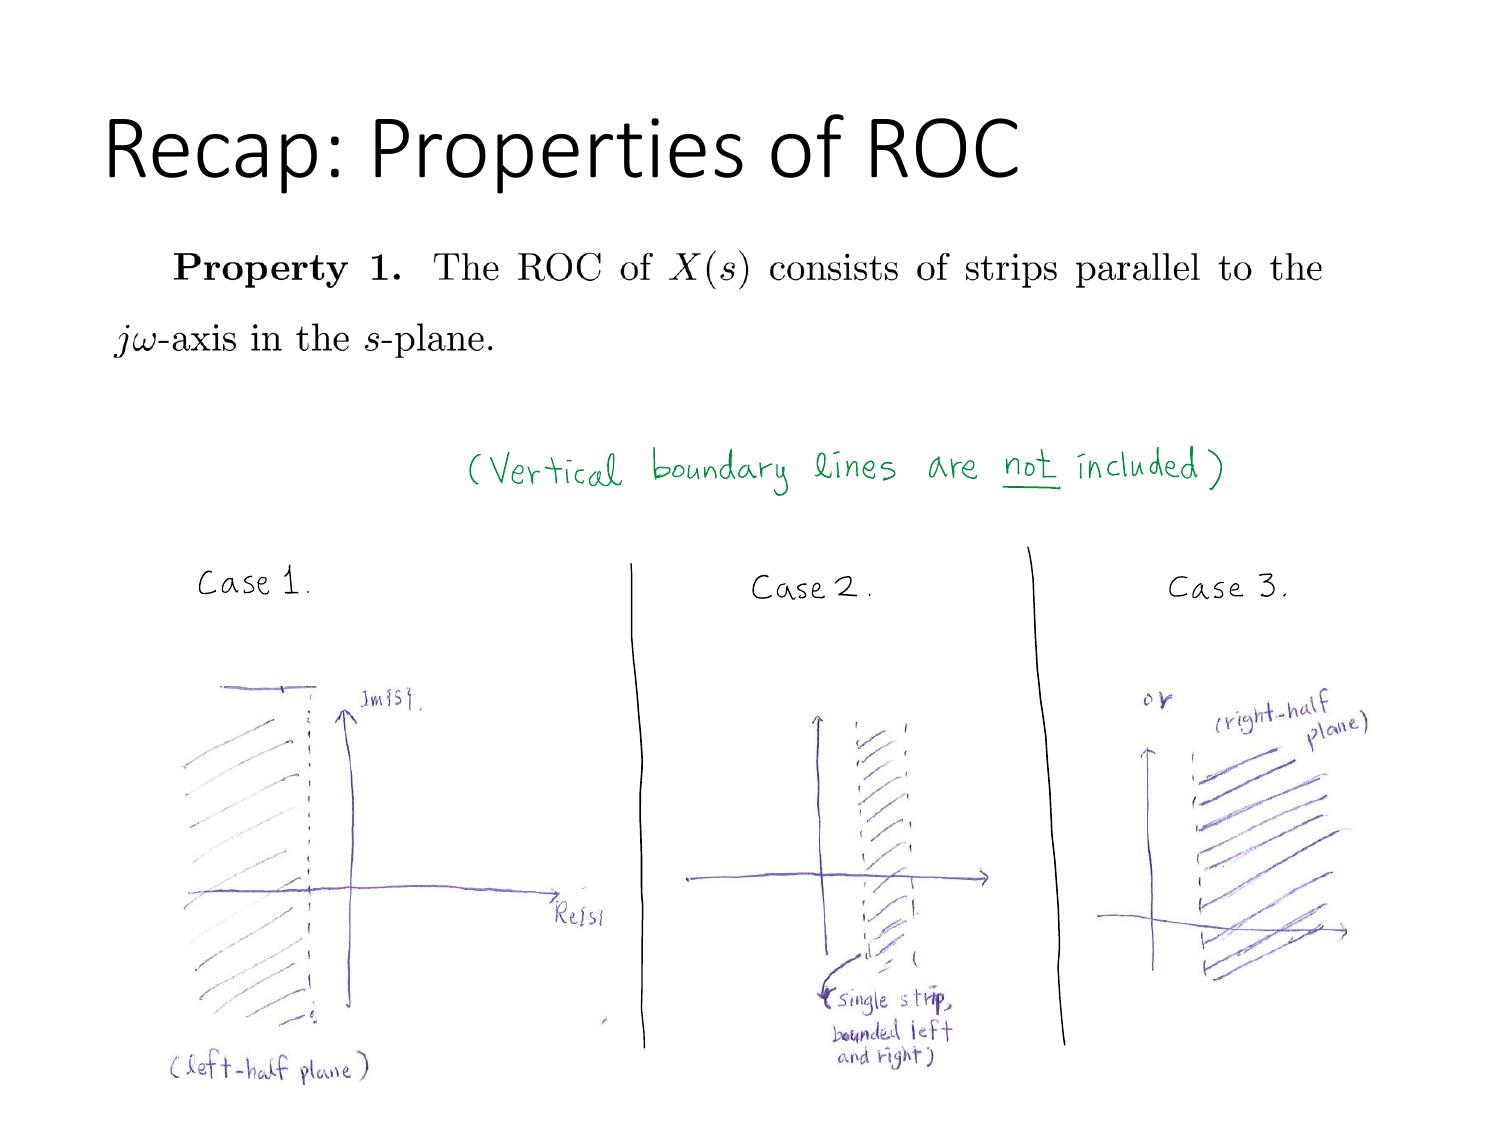 Recap: Properties of ROC
Property 1. The ROC of X(s) consists of strips parallel to the
jω-axis in the s-plane.
(Vertical boundary lines are not included)
Case 1.
Im{s}.
Re{s}
(left-half plane)
Case 2.
(single strip,
bounded left
and right)
Case 3.
or
(right-half
plane)